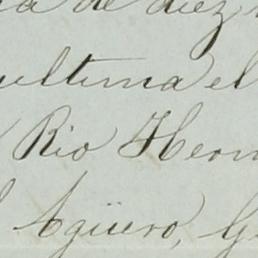 de diez
ultima el
Rio Hern
Agüero, G